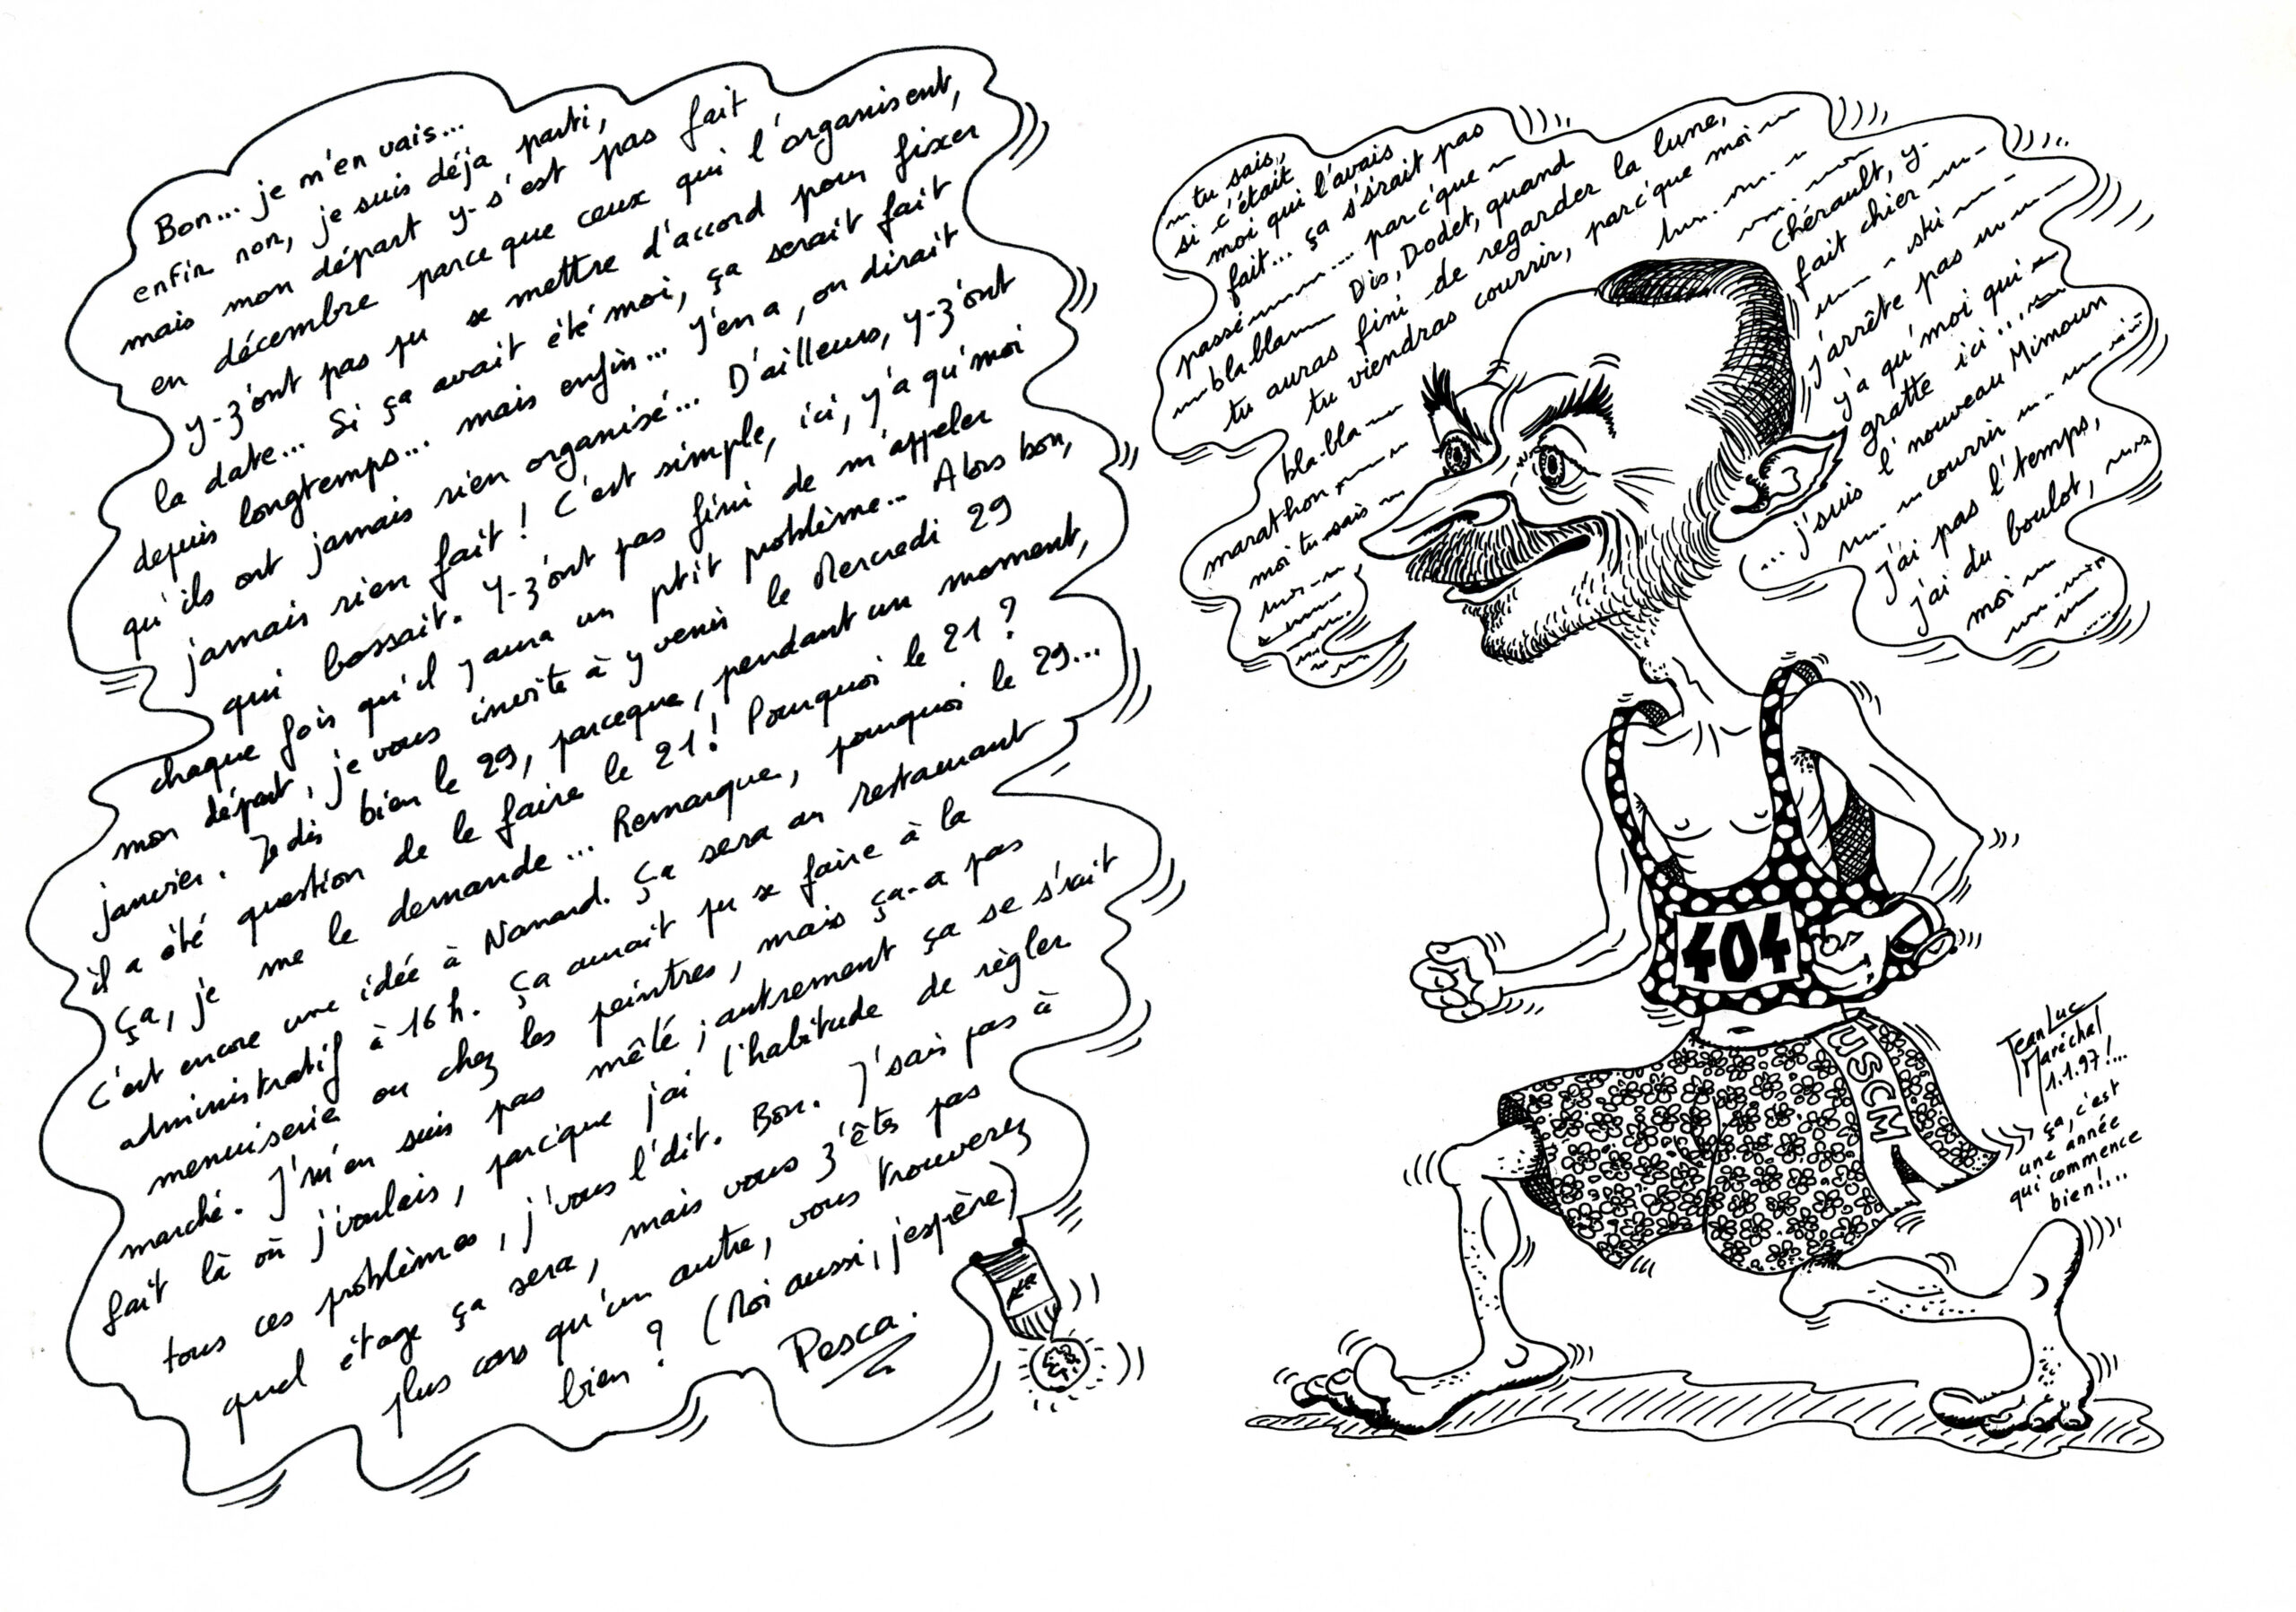 Bon... je m'en vais...
enfin non, je suis déja parti,
mais mon départ y-s'est pas fait
en décembre parce que ceux qui l'organisent,
y-z'ont pas pu se mettre d'accord pour fixer
la date... Si ça avait été moi, ça serait fait
depuis longtemps... mais enfin... Y'en a, on dirait
qu'ils ont jamais rien organisé... D'ailleurs, y-z'ont
jamais rien fait! C'est simple, ici, y'a qu'moi
qui bossait. Y-z'ont pas fini de m'appeler
chaque fois qu'il y aura un ptit problème... Alors bon,
mon départ, je vous invite à y venir le Mercredi 29
janvier. Je dis bien le 29, parceque, pendant un moment,
il a été question de le faire le 21! Pourquoi le 21?
Ça, je me le demande... Remarque, pourquoi le 29...
C'est encore une idée à Nonard. Ça sera au restaurant
administratif à 16h. Ça aurait pu se faire à la
menuiserie ou chez les peintres, mais ça-a pas
marché. J'm'en suis pas mêlé; autrement ça se s'rait
fait là où j'voulais, parc'que j'ai l'habitude de règler
tous ces problèmes, j'vous l'dit. Bon. J'sais pas à
quel étage ça sera, mais vous z'êtes pas
plus cons qu'un autre, vous trouverez
bien? (Moi aussi, j'espère)
Pesca.
tu sais,
si c'était
moi qui l'avais
fait... ça s's'rait pas
passé ... parc'que
bla-bla Dis, Dodet, quand
tu auras fini de regarder la lune,
tu viendras courrir, parc'que moi
bla-bla
marathon
moi tu sais
Chérault, y-
fait chier
ski
j'arrête pas
y'a qu'moi qui
gratte ici...
... j'suis l'nouveau Mimoun
courrir
j'ai pas l'temps,
j'ai du boulot,
moi
404
USCM
Jean Luc
Maréchal
1.1.97!...
ça, c'est
une année
qui commence
bien!...